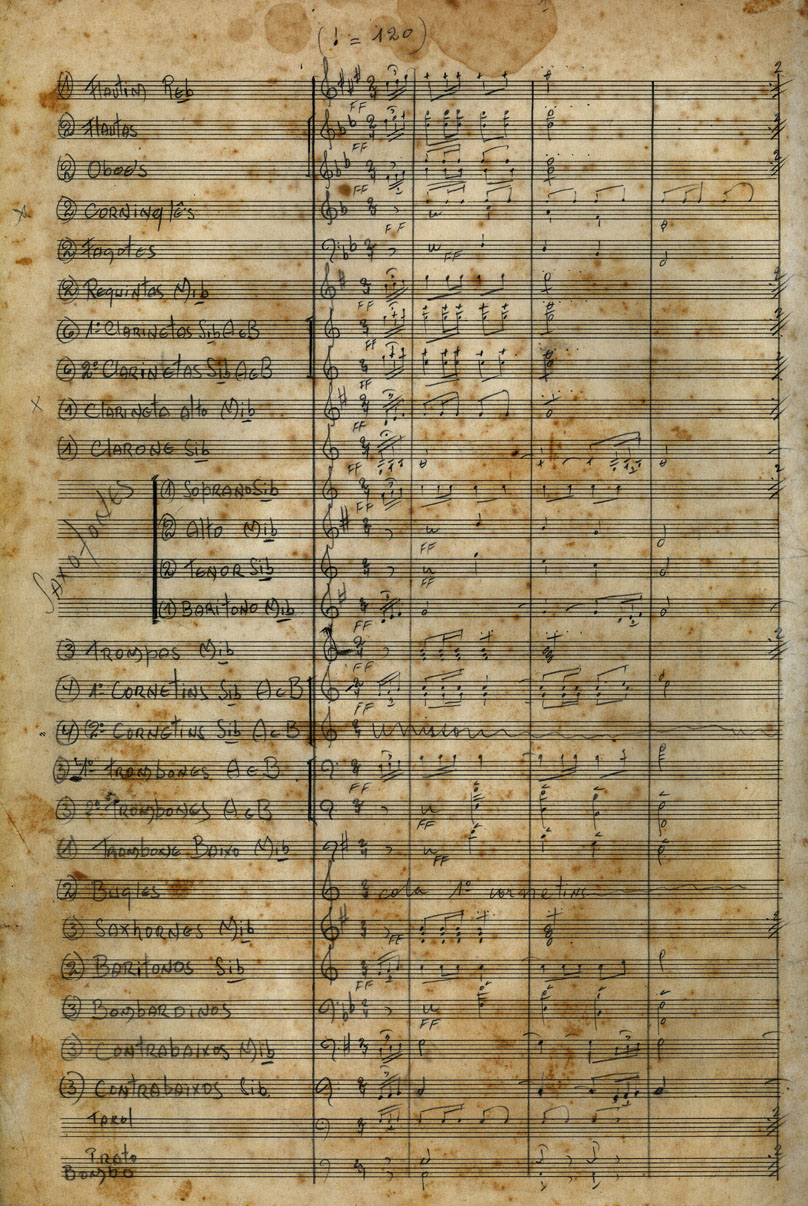 (♩ = 120)
① Flautim Reb
② Flautas
② Oboés
② Corninglês
② Fagotes
② Requintas Mib
⑥ 1º Clarinetas Sib A e B
⑥ 2º Clarinetas Sib A e B
① Clarineta alto Mib
① Clarone Sib
Saxofones
① Soprano Sib
② Alto Mib
② Tenor Sib
① Baritono Mib
③ Trompas Mib
④ 1º Cornetins Sib A e B
④ 2º Cornetins Sib A e B unisson
③ 1º Trombones A e B
③ 2º Trombones A e B
① Trombone Baixo Mib
② Bugles cola 1º cornetins
③ Saxhornes Mib
② Baritonos Sib
③ Bombardinos
③ Contrabaixos Mib
③ Contrabaixos Sib
Tarol
Prato
Bombo